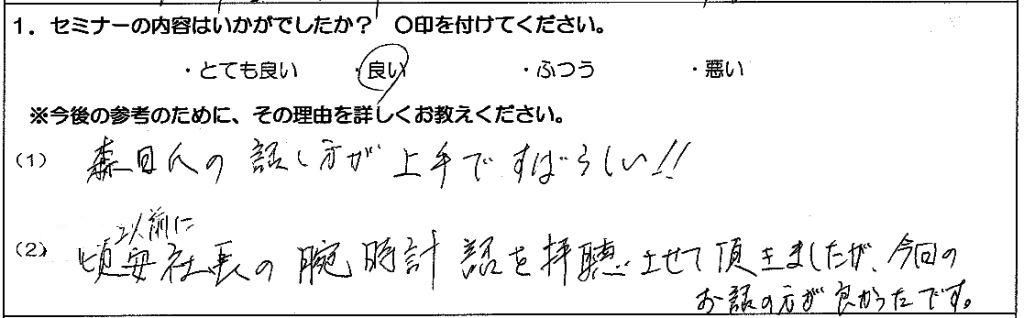 1．セミナーの内容はいかがでしたか？　〇印を付けてください。
・とても良い　・良い　・ふつう　・悪い
※今後の参考のために、その理由を詳しくお教えください。
(1) 森田人の話し方が上手ですばらしい!!
以前に
(2) 頃安社長の腕時計話を拝聴させて頂きましたが、今回の
お話の方が良かったです。